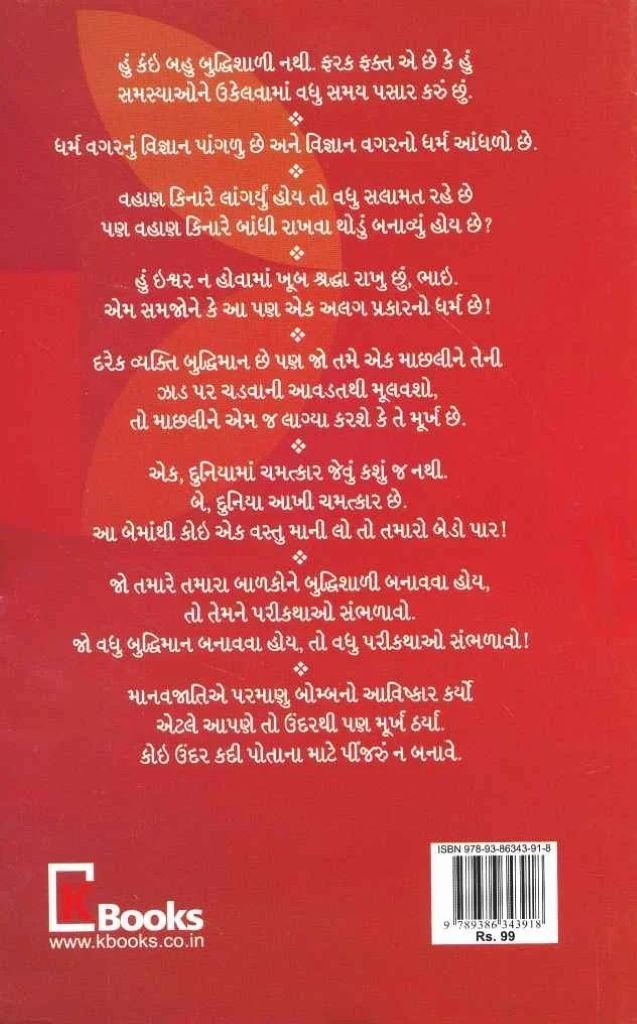 હું કંઇ બહુ બુદ્ધિશાળી નથી. ફરક ફક્ત એ છે કે હું
સમસ્યાઓને ઉકેલવામાં વધુ સમય પસાર કરું છું.
❖
ધર્મ વગરનું વિજ્ઞાન પાંગળુ છે અને વિજ્ઞાન વગરનો ધર્મ આંધળો છે.
❖
વહાણ કિનારે લાંગર્યું હોય તો વધુ સલામત રહે છે
પણ વહાણ કિનારે બાંધી રાખવા થોડું બનાવ્યું હોય છે?
❖
હું ઇશ્વર ન હોવામાં ખૂબ શ્રદ્ધા રાખુ છું, ભાઇ.
એમ સમજોને કે આ પણ એક અલગ પ્રકારનો ધર્મ છે!
❖
દરેક વ્યક્તિ બુદ્ધિમાન છે પણ જો તમે એક માછલીને તેની
ઝાડ પર ચડવાની આવડતથી મૂલવશો,
તો માછલીને એમ જ લાગ્યા કરશે કે તે મૂર્ખ છે.
❖
એક, દુનિયામાં ચમત્કાર જેવું કશું જ નથી.
બે, દુનિયા આખી ચમત્કાર છે.
આ બેમાંથી કોઇ એક વસ્તુ માની લો તો તમારો બેડો પાર!
❖
જો તમારે તમારા બાળકોને બુદ્ધિશાળી બનાવવા હોય,
તો તેમને પરીકથાઓ સંભળાવો.
જો વધુ બુદ્ધિમાન બનાવવા હોય, તો વધુ પરીકથાઓ સંભળાવો!
❖
માનવજાતિએ પરમાણુ બોમ્બનો આવિષ્કાર કર્યો
એટલે આપણે તો ઉંદરથી પણ મૂર્ખ ઠર્યા.
કોઇ ઉંદર કદી પોતાના માટે પીંજરું ન બનાવે.
ISBN 978-93-86343-91-8
9 789386 343918
Rs. 99
K Books
www.kbooks.co.in